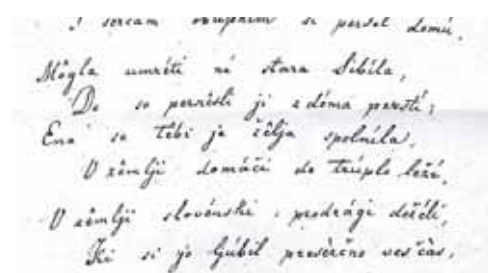 sercam obupnim si peršel domú.
Môgla umréti ni stara Sibíla,
De so pernêsli ji z dóma perstí;
Ena se têbi je žêlja spolníla,
V zêmlji domáči de trúplo leží.
V zêmlji slovénski, predrági dežêli,
Ki si jo ljúbil presèrčno ves čas,